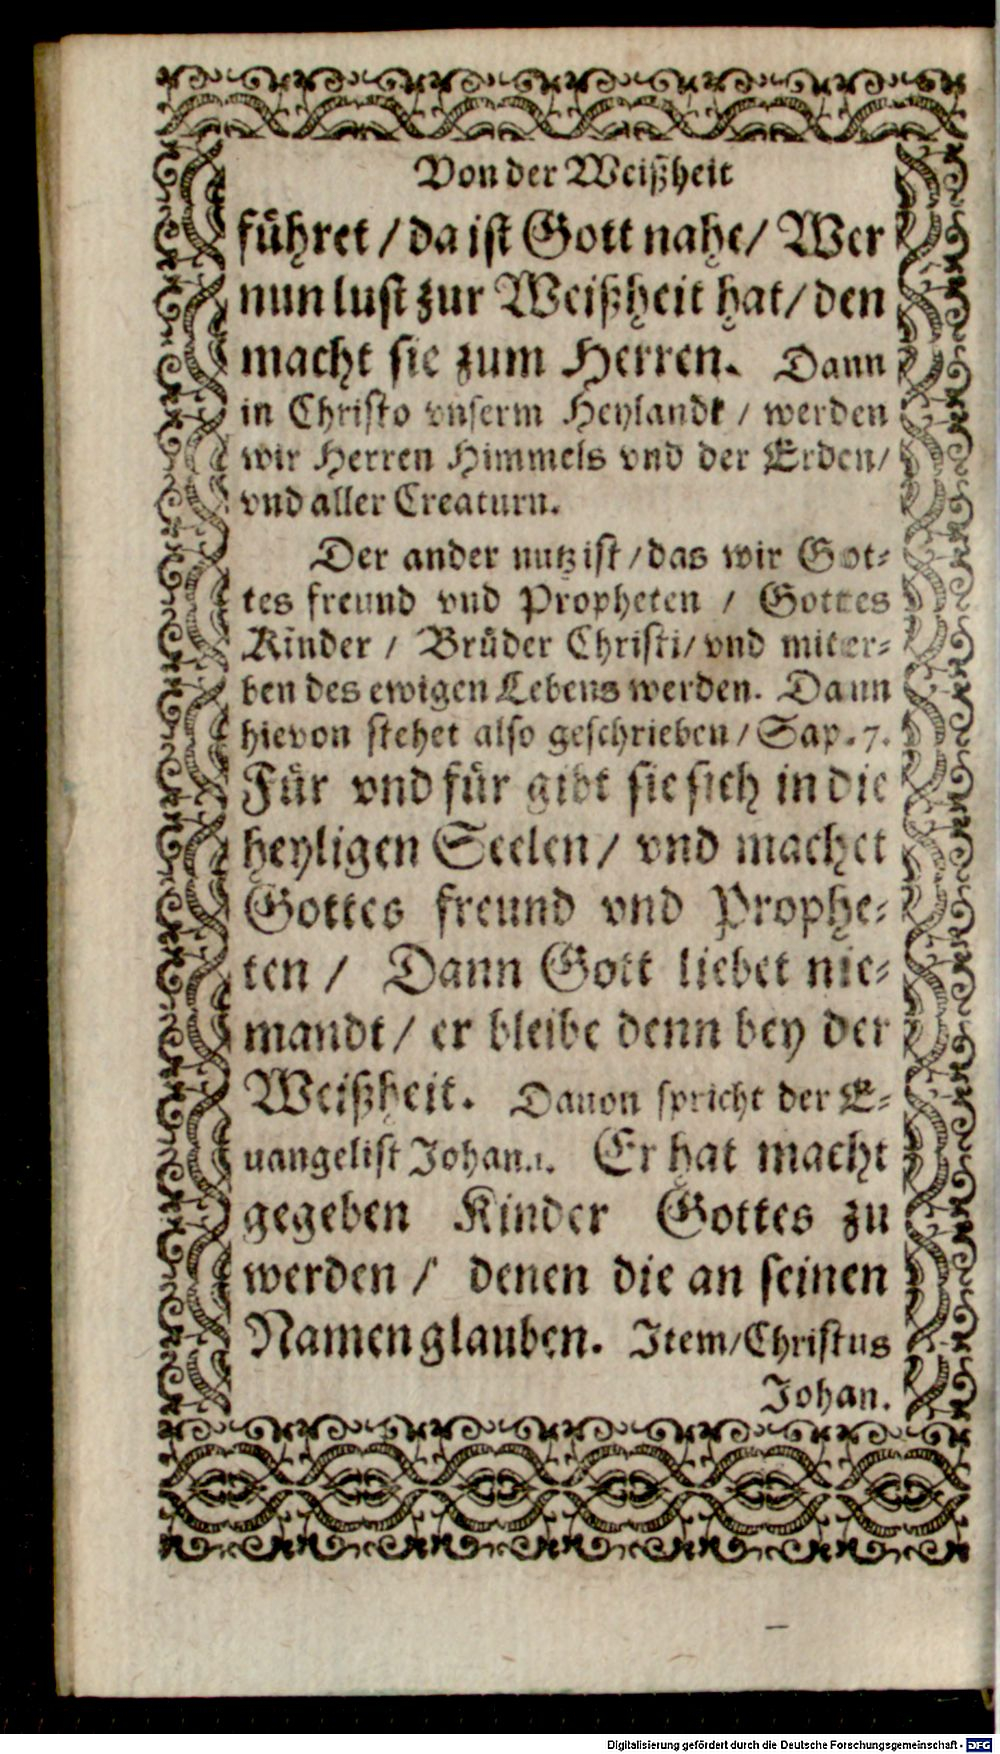 Von der Weißheit
führet / da ist Gott nahe / Wer
nun lust zur Weißheit hat / den
macht sie zum Herren. Dann
in Christo vnserm Heylandt / werden
wir Herren Himmels vnd der Erden /
vnd aller Creaturn.
Der ander nutz ist / das wir Got⸗
tes freund vnd Propheten / Gottes
Kinder / Brüder Christi / vnd miter⸗
ben des ewigen Lebens werden. Dann
hievon stehet also geschrieben / Sap. 7.
Für vnd für gibt sie sich in die
heyligen Seelen / vnd machet
Gottes freund vnd Prophe⸗
ten / Dann Gott liebet nie⸗
mandt / er bleibe denn bey der
Weißheit. Dauon spricht der E⸗
uangelist Johan. 1. Er hat macht
gegeben Kinder Gottes zu
werden / denen die an seinen
Namen glauben. Item / Christus
Johan.
Digitalisierung gefördert durch die Deutsche Forschungsgemeinschaft - DFG